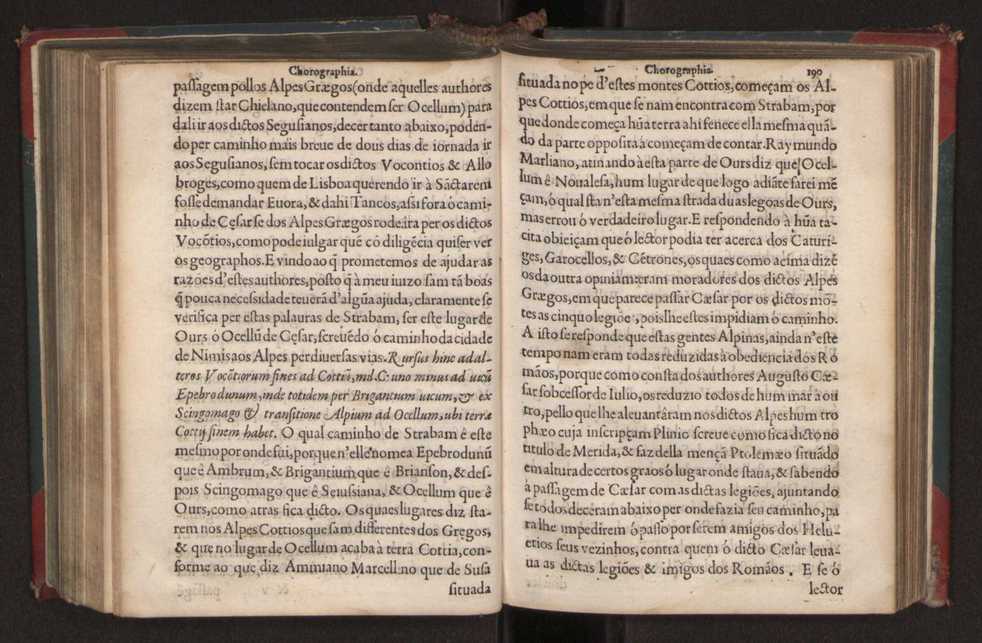 Chorographia.
passagem pollos Alpes Grægos (onde aquelles authores
dizem star Chielano, que contendem ser Ocellum) para
dali ir aos dictos Segusianos, decer tanto abaixo, poden-
do per caminho mais breue de dous dias de iornada ir
aos Segusianos, sem tocar os dictos Vocontios & Allo
broges, como quem de Lisboa querendo ir à Sãctarem
fosse demandar Euora, & dahi Tancos, assi fora o cami-
nho de Cęsar se dos Alpes Grægos rodeira per os dictos
Vocõtios, como pode iulgar quẽ cõ diligẽcia quiser ver
os geographos. E vindo ao q̃ prometemos de ajudar as
razões d'estes authores, pòsto q̃ à meu iuizo sam tã boas
q̃ pouca necessidade teuerã d'algũa ajuda, claramente se
verifica per estas palauras de Strabam, ser este lugar de
Ours ò Ocellũ de Cęsar, screuẽdo ò caminho da cidade
de Nimis aos Alpes per diuersas vias. Rursus hinc ad al-
teros Vocõtiorum fines ad Cottiũ, mil. C. uno minus ad uicũ
Epebrodunum, inde totidem per Brigantium uicum, & ex
Scingomago & transitione Alpium ad Ocellum, ubi terræ
Cottij finem habet. O qual caminho de Strabam é este
mesmo por onde fui, porque n'elle nomea Epebrodunũ
que è Ambrum, & Brigantium que é Brianson, & des-
pois Scingomago que ê Seiussiana, & Ocellum que ê
Ours, como atras fica dicto. Os quaes lugares diz sta-
rem nos Alpes Cottios que sam differentes dos Gregos,
& que no lugar de Ocellum acaba à terra Cottia, con-
forme ao que diz Ammiano Marcellino que de Susa
situada
Chorographia. 190
situada no pe d'estes montes Cottios, começam os Al-
pes Cottios, em que se nam encontra com Strabam, por
que donde começa hũa terra ahi fenece ella mesma quã-
do da parte opposita à começam de contar. Raymundo
Marliano, atinando à esta parte de Ours diz que Ocel-
lum ê Noualesa, hum lugar de que logo adiãte farei mẽ
çam, ò qual sta n'esta mesma strada duas legoas de Ours,
mas errou ó verdadeiro lugar. E respondendo à hũa ta-
cita obieiçam que ó lector podia ter acerca dos Caturi-
ges, Garocellos, & Cẽtrones, os quaes como acima dizẽ
os da outra opiniam eram moradores dos dictos Alpes
Grægos, em que parece passar Cæsar por os dictos mõ-
tes as cinquo legiões, pois lhe estes impidiam ò caminho.
A isto se responde que estas gentes Alpinas, ainda n'este
tempo nam eram todas reduzidas à obediencia dos Ro
mãos, porque como consta dos authores Augusto Cæ-
sar sobcessor de Iulio, os reduzio todos de hum mar à ou
tro, pello que lhe aleuantãram nos dictos Alpes hum tro
phæo cuja inscripçam Plinio screue como fica dicto no
titulo de Merida, & faz della mençã Ptolemæo situãdo
em altura de certos graos ò lugar onde staua, & sabendo
à passagem de Cæsar com as dictas legiões, ajuntando
se todos deceram abaixo per onde fazia seu caminho, pa
ra lhe impedirem ò passo por serem amigos dos Helu-
etios seus vezinhos, contra quem ó dicto Cæsar leua-
ua as dictas legiões & imigos dos Romãos. E se ó
lector